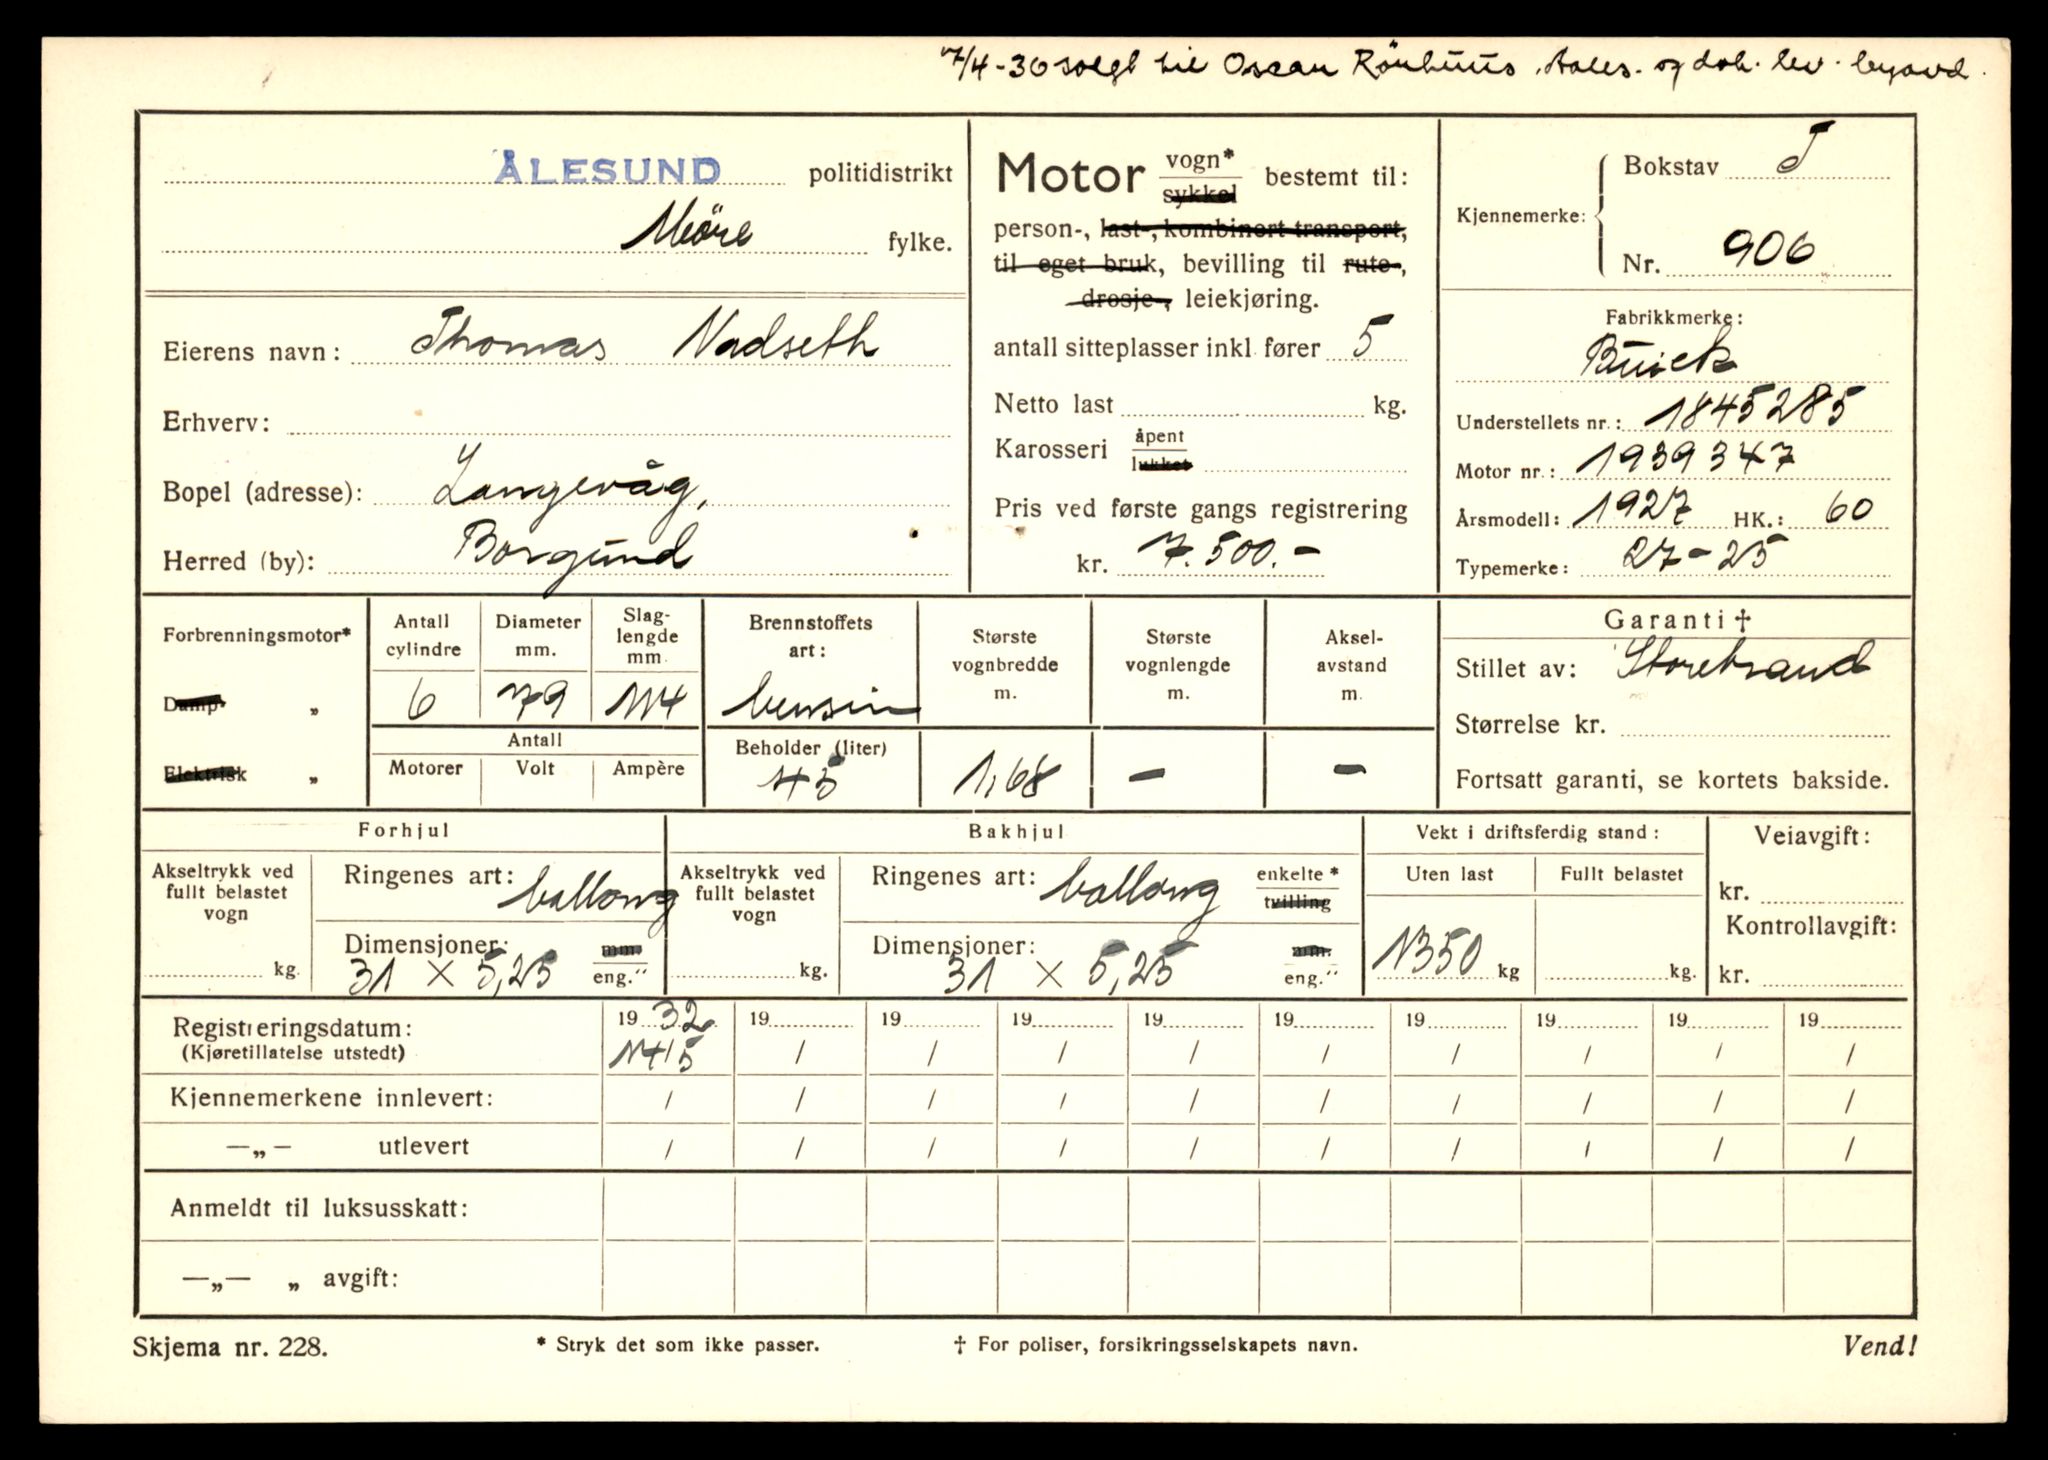 7/4-36 solgt til Oscar Rönhuus, Aales. og dok. lev. byavd.
ÅLESUND politidistrikt
Möre fylke.
Eierens navn: Thomas Nadseth
Erhverv:
Bopel (adresse): Langevåg,
Herred (by): Borgund
Motor vogn* sykkel bestemt til:
person-, last-, kombinert transport,
til eget bruk, bevilling til rute-,
drosje-, leiekjøring.
antall sitteplasser inkl. fører 5
Netto last kg.
Karosseri åpent lukket
Pris ved første gangs registrering
kr. 7.500.-
Kjennemerke: Bokstav T
Nr. 906
Fabrikkmerke:
Buick
Understellets nr.: 1845285
Motor nr.: 1939347
Årsmodell: 1927 HK.: 60
Typemerke: 27-25
Forbrenningsmotor*
Damp- „
Elektrisk „
Antall cylindre
6
Diameter mm.
79
Slag-lengde mm
114
Antall
Motorer Volt Ampère
Brennstoffets art:
bensin
Beholder (liter)
45
Største vognbredde m.
1,68
Største vognlengde m.
—
Aksel-avstand m.
—
Garanti †
Stillet av: Storebrand
Størrelse kr.
Fortsatt garanti, se kortets bakside.
Forhjul
Akseltrykk ved fullt belastet vogn
kg.
Ringenes art: ballong
Dimensjoner: 31 × 5,25 mm. eng.“
Bakhjul
Akseltrykk ved fullt belastet vogn
kg.
Ringenes art: ballong enkelte* tvilling
Dimensjoner: 31 × 5,25 mm. eng.“
Vekt i driftsferdig stand:
Uten last Fullt belastet
1350 kg kg.
Veiavgift:
kr.
Kontrollavgift:
kr.
Registreringsdatum: 1932 19 19 19 19 19 19 19 19 19
(Kjøretillatelse utstedt) 14/5 / / / / / / / / /
Kjennemerkene innlevert: / / / / / / / / / /
—„— utlevert / / / / / / / / / /
Anmeldt til luksusskatt:
—„— „ avgift:
Skjema nr. 228. * Stryk det som ikke passer. † For poliser, forsikringsselskapets navn. Vend!